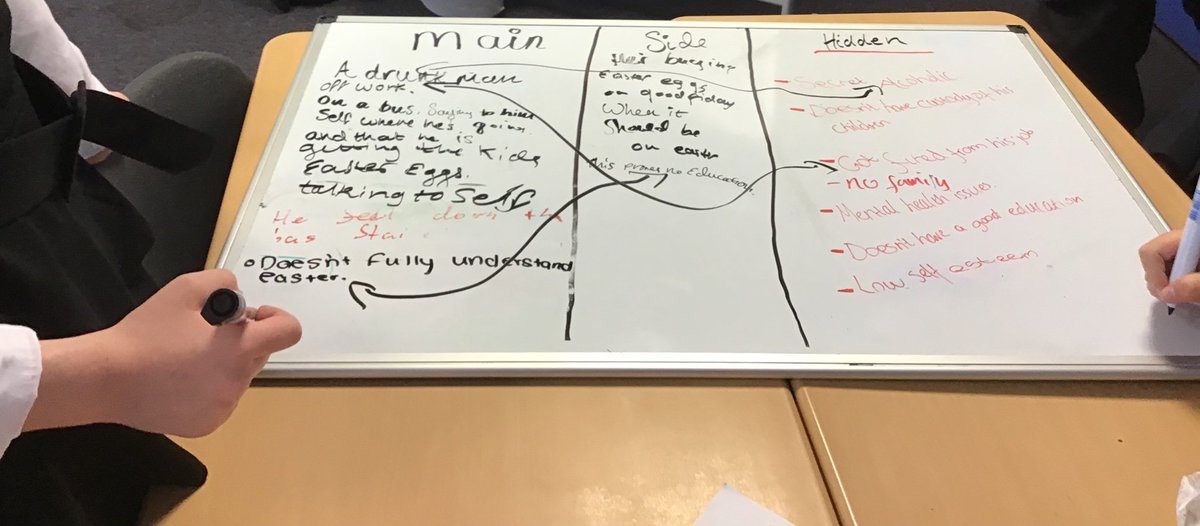 Main
A drunk man
off work.
On a bus. Saying to him
Self where he's going
and that he is
getting the Kids
Easter Eggs.
talking to Self
He down
has
Doesn't fully understand
easter.
Side
buying
Easter eggs
on good friday
When it
Should be
on easter
this proves no Education
Hidden
- Secret Alcoholic
- Doesn't have custody of his
children
- Got fired from his job
- no family
- Mental health issues.
- Doesn't have a good education
- Low self esteem